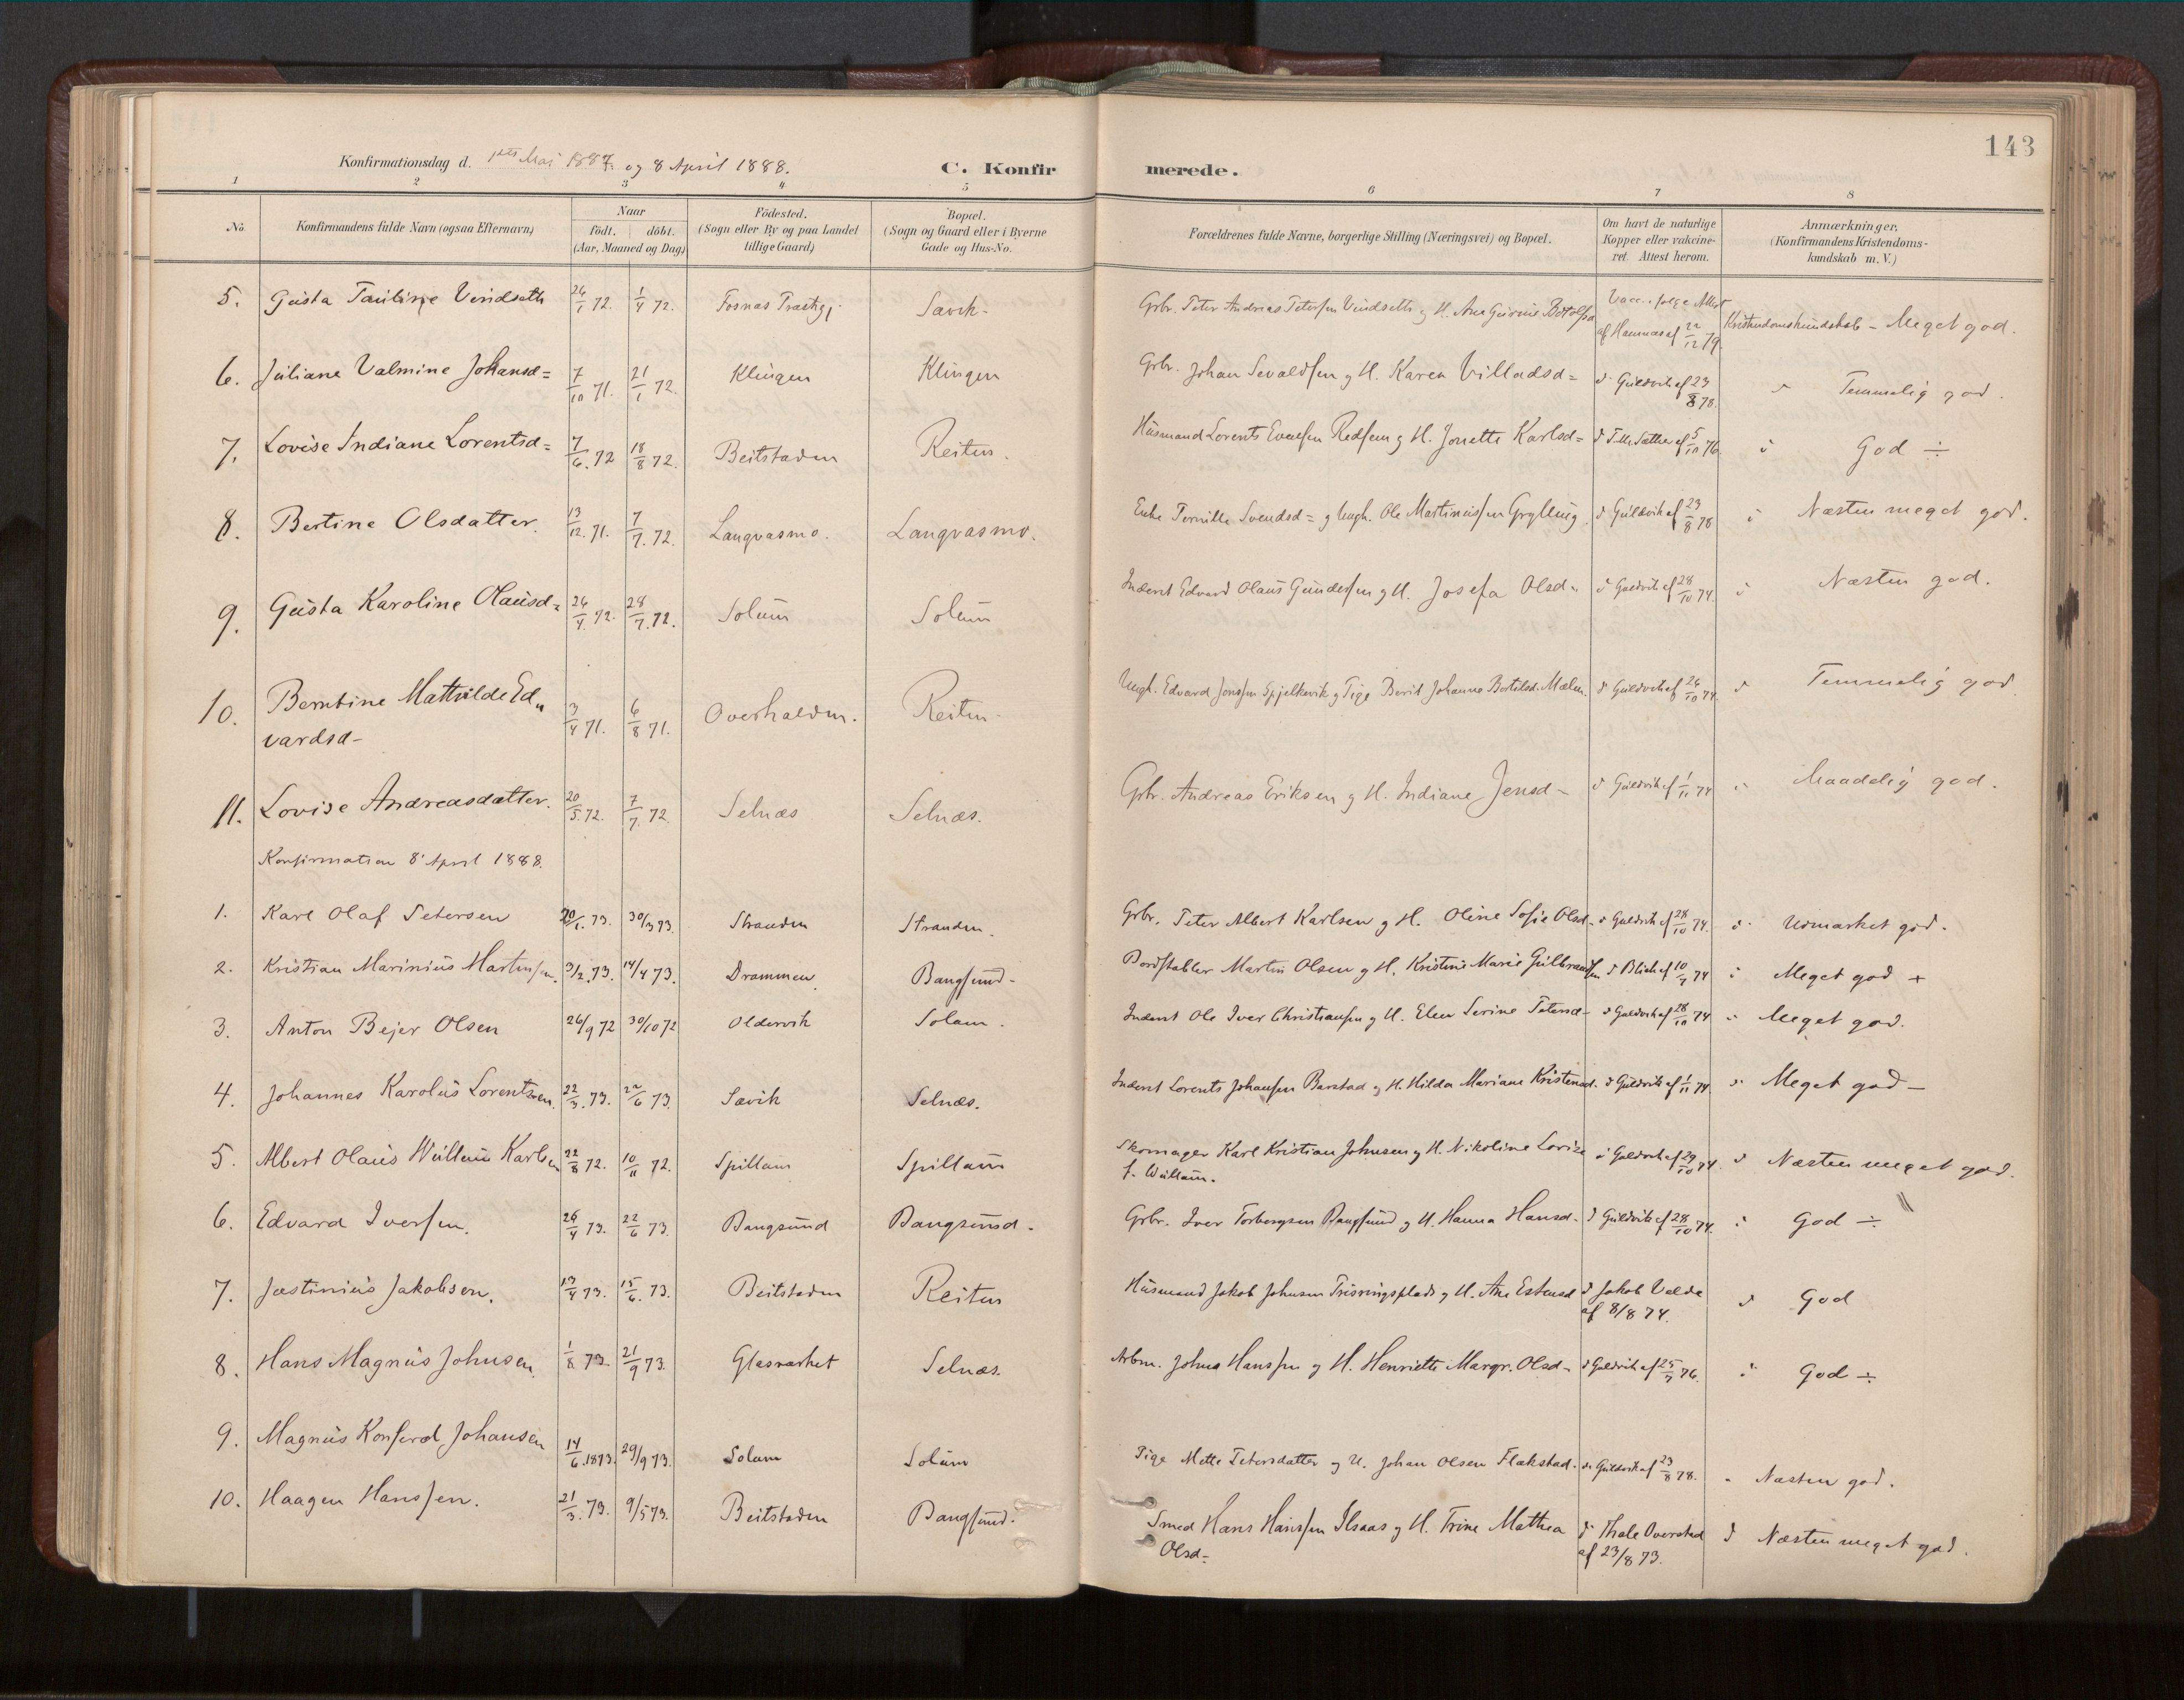 143
Konfirmationsdag d. 1ste Mai 1887. og 8 April 1888.
C. Konfir merede.
1 2 3 4 5 6 7 8
No. Konfirmandens fulde Navn (ogsaa Efternavn) Naar født. døbt. (Aar, Maaned og Dag) Födested. (Sogn eller By og paa Landet tillige Gaard) Bopæl. (Sogn og Gaard eller i Byerne Gade og Hus-No. Forældrenes fulde Navne, borgerlige Stilling (Næringsvei) og Bopæl. Om havt de naturlige Kopper eller vakcineret. Attest herom. Anmærkninger, (Konfirmandens Kristendomskundskab m. V.)
5. Gusta Pauline Vindseth 1/4 72. Fosnæs Præstegj. Savik- Grbr. Peter Andreas Petersen Vindseth og H. Ane Vacc. ifølge Attest af 22/12 79. Kristendomskundskab - Meget god.
6. Juliane Valmine Johansd= 7/10 71. 21/1 72. Klingen Klingen Grbr. Johan Sevaldsen og H. Karen Villadsd= d° Guldvik af 23/8 78. d° Temmelig god.
7. Lovise Indiane Lorentsd= 7/6. 72 18/8 72. Beitstaden Reiten. Husmand Lorents Evensen og H. Jonette Karlsd= d° Sæther af 5/10 76. d° God ÷
8. Bertine Olsdatter. 13/12. 71. 7/7. 72. Langvasmo. Langvasmo. Enke Pernille Svendsd= og Ungk. Ole Martinussen d° Guldvik af 23/8 78 d° Næsten meget god.
9. Gusta Karoline Olausd= 26/4. 72. 28/7. 72. Solum Solum Inderst Edvard Olaus Gundersen og H. Josefa Olsd= d° Guldvik af 28/10 74. d° Næsten god.
10. Berntine Mathilde Edvardsd- 3/4 71. 6/8 71. Overhalden. Reiten- Ungk. Edvard Jonssen Spjelkevik og Pige Berit Johanna d° Guldvik af 26/10 74. d° Temmelig god.
11. Lovise Andreasdatter. 20/5. 72. 7/7. 72. Selnæs Selnæs. Grbr. Andreas Eriksen og H. Indiane Jensd- d° Guldvik af 1/11 74 d° Maadelig god.
Konfirmation 8' April 1888.
1. Karl Olaf Petersen 20/1. 73. 30/3 73. Stranden Stranden. Grbr. Peter Albert Karlsen og H. Oline Sofie Olsd- d° Guldvik af 28/10 74. d° Udmærket god.
2. Kristian Marinius Martinsen. 3/2. 73. 14/4 73. Drammen. Bangsund- Bordstabler Martin Olsen og H. Kristine Marie Gulbrandsen d° Blich af 10/7 74 d° Meget god +
3. Anton Bejer Olsen 26/9 72 30/10 72 Oldervik Solum. Inderst Ole Iver Christiansen og H. Elen Serine Petersd- d° Guldvik af 28/10 74 d° Meget god.
4. Johannes Karolus Lorentzen. 22/3. 73. 22/6 73. Sævik Selnæs. Inderst Lorents Johansen Barstad og H. Hilda Mariane Kristensd. d° Guldvik af 1/11 74. d° Meget god-
5. Albert Olaus Wullum Karlsen 22/8 72. 10/11 72. Spillum Spillum Skomager Karl Kristian Johnsen og H. Nikoline Lovise f. Wullum. d° Guldvik af 29/10 74. d° Næsten meget god.
6. Edvard Iversen. 26/4 73. 22/6 73. Bangsund Bangsund. Grbr. Iver Torbergsen Bangsund og H. Hanna Hansd. d° Guldvik af 28/10 74. d° God ÷
7. Justinius Jakobsen. 13/4 73. 15/6. 73. Beitstaden Reiten Husmand Jakob Johnsen og H. Ane Estensd d° Jakob Velde af 8/8 74. d° God
8. Hans Magnus Johnsen. 1/8 73. 21/9 73. Glasværket Selnæs. Arbm. Johnes Hanssen og H. Henriette Margr. Olsd- d° Guldvik af 25/7 76. d° God ÷
9. Magnus Konferd Johansen 14/6. 1873. 29/9 73. Solum Solum Pige Mette Petersdatter og U. Johan Olsen Flakstad. d° Guldvik af 23/8 78. Næsten god.
10. Haagen Hanssen. 21/3. 73. 9/5 73. Beitstaden Bangsund. Smed Hans Hanssen og H. Trine Mathea Olsd- d° Thale Overstad af 23/8 73. d° Næsten meget god.